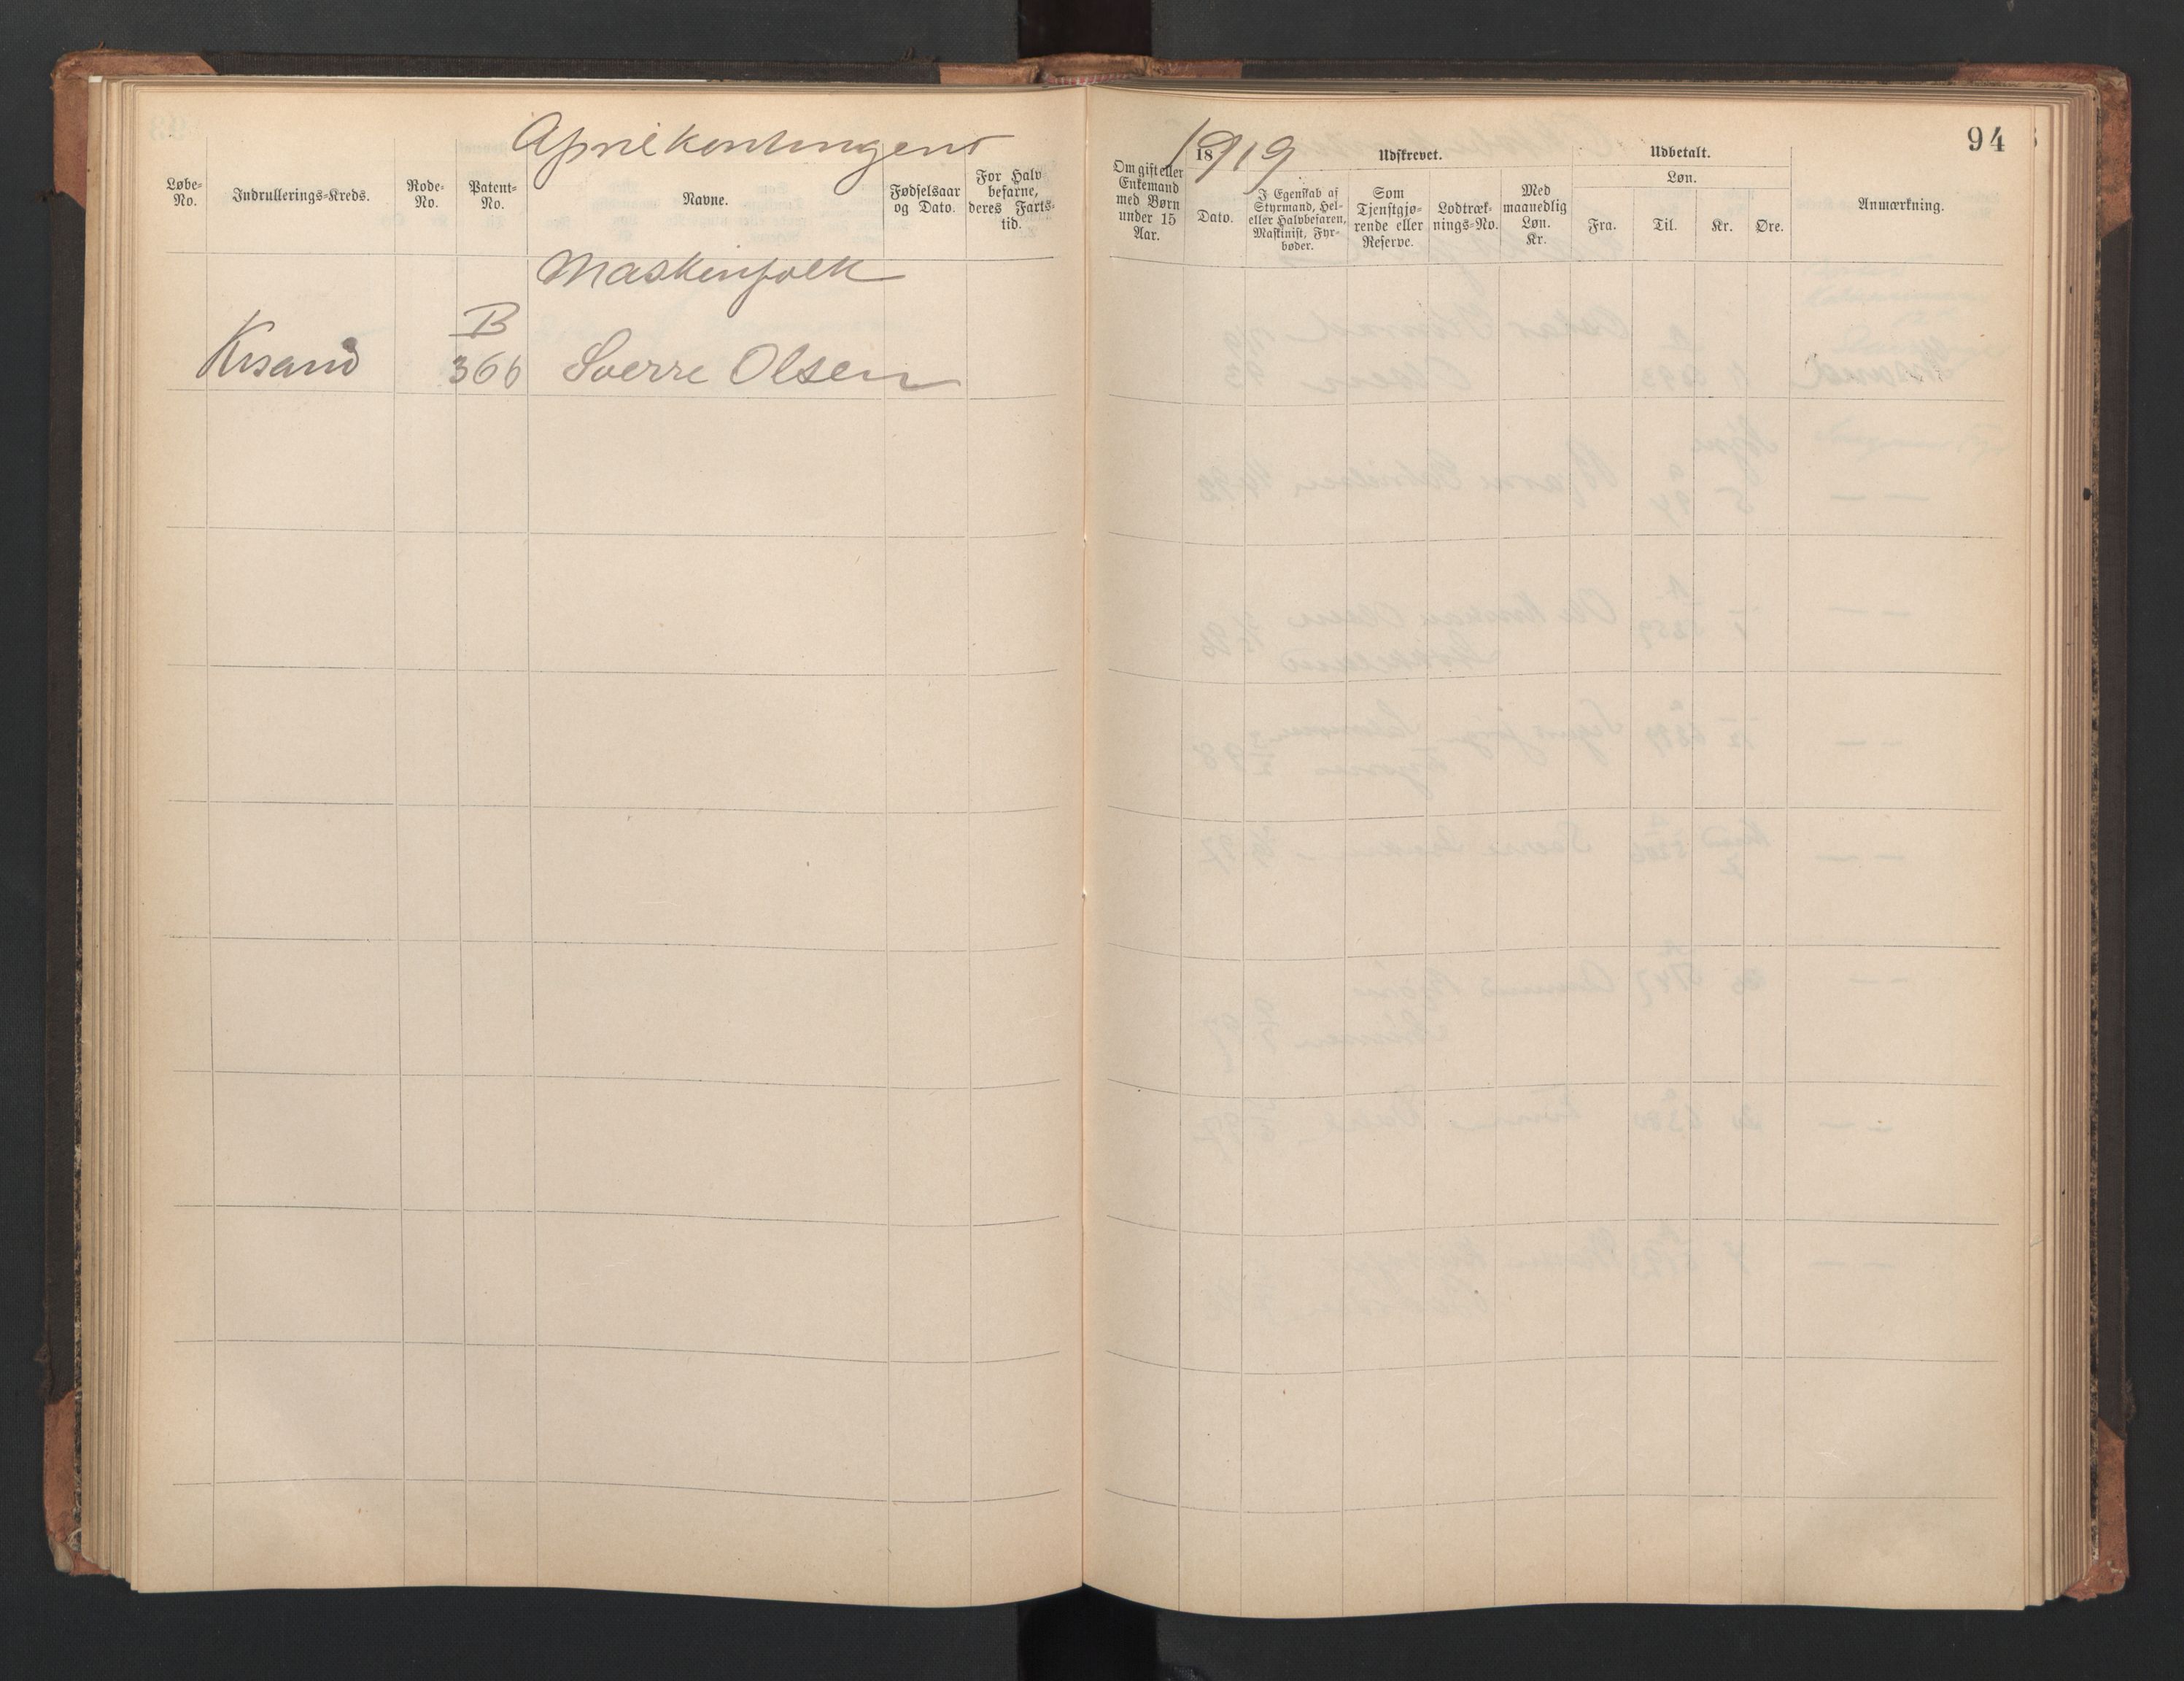 Aprilkontingent
1919
94
Løbe-No.
Indrullerings-Kreds.
Rode-No.
Patent-No.
Navne.
Fødselsaar og Dato.
For Halvbefarne, deres Fartstid.
Om gift eller Enkemand med Børn under 15 Aar.
18
Udskrevet.
Dato.
I Egenskab af Styrmand, Hel- eller Halvbefaren, Maskinist, Fyrbøder.
Som Tjenstgjørende eller Reserve.
Lodtræknings-No.
Med maanedlig Løn. Kr.
Udbetalt.
Løn.
Fra.
Til.
Kr.
Øre.
Anmærkning.
Maskinfolk
B
Krsand 366 Sverre Olsen